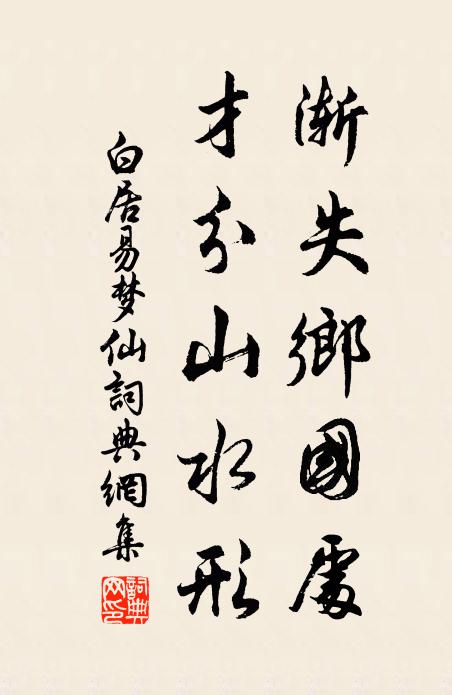 漸失鄉國處
才分山水形
白居易梦仙詞典網集
詞典
网印